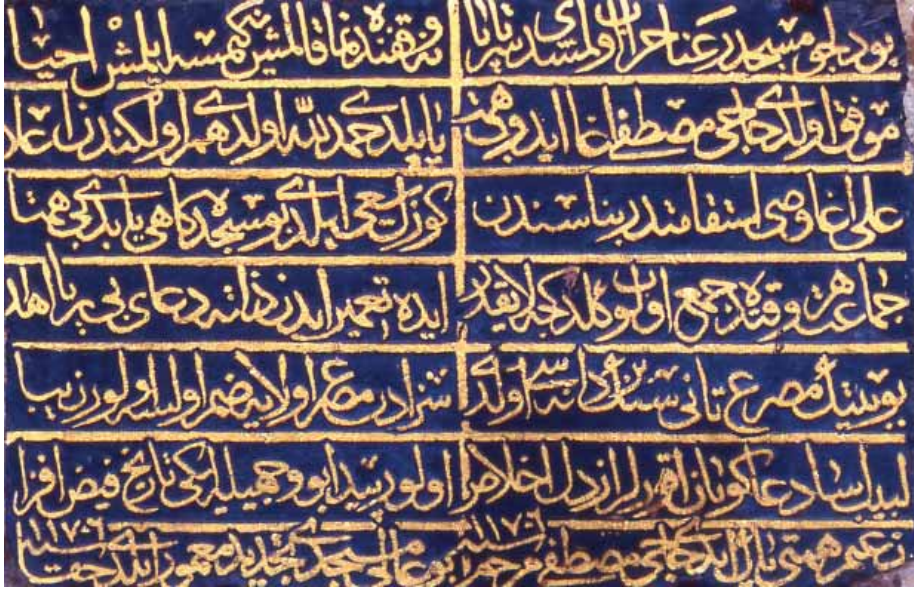 بو دلجو مسجد رعنا خراب اولمشدی سرتاپا نه وقفنده نما قالمش نه کیمسه ایلمش احیا
موفق اولدی حاجی مصطفی اغا ایدوب همت یاپلدی حمد لله اولدی هم اولکندن اعلا
علی اغا وصی استقامتدر بناسندن کوزل سعی ایلدی بو مسجد کاهی یاپدی بی همتا
جماعت هر وقتده جمع اولوب کلدکجه لایقدر ایده تعمیر ایدن ذاته دعای بی ریا اهدا
بو بیتک مصرع ثانی دانه سی اولدی سزادر مصرع اولایه ضم اولسه اولور زیبا
لبیب اسا دعا کویان از دل اخلاص اولور ایکی تاریخ فیض افزا
همتی حاجی مصطفی مرحوم سنه ١١٧٦ بو عالی مسجدی تجدید معمور ایلدی حقا سنه ١١٧٦